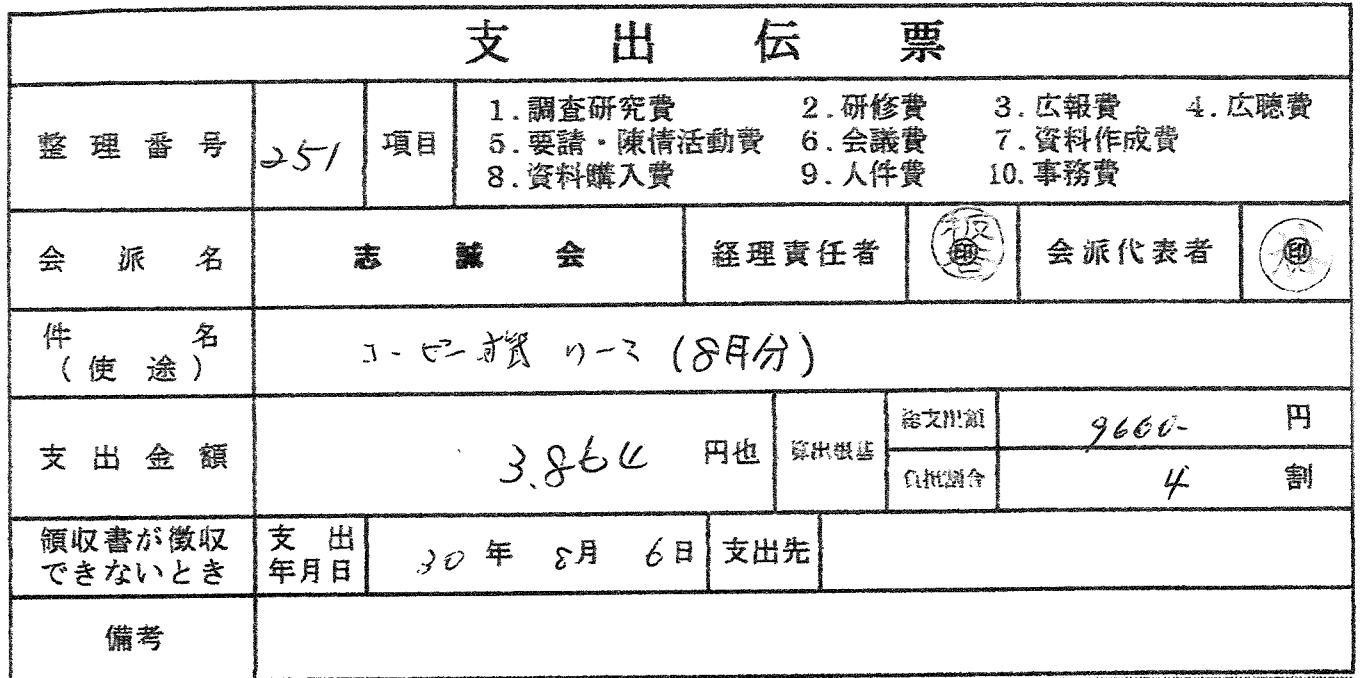 支出伝票
整理番号 251 項目 1.調査研究費 2.研修費 3.広報費 4.広聴費
5.要請・陳情活動費 6.会議費 7.資料作成費
8.資料購入費 9.人件費 10.事務費
会派名 志誠会 経理責任者 印 会派代表者 印
件名
(使途) コーピー機リース(8月分)
支出金額 3,864 円也 算出根基 総支出額 9660- 円
負担割合 4 割
領収書が徴収
できないとき 支出
年月日 30年 8月 6日 支出先
備考